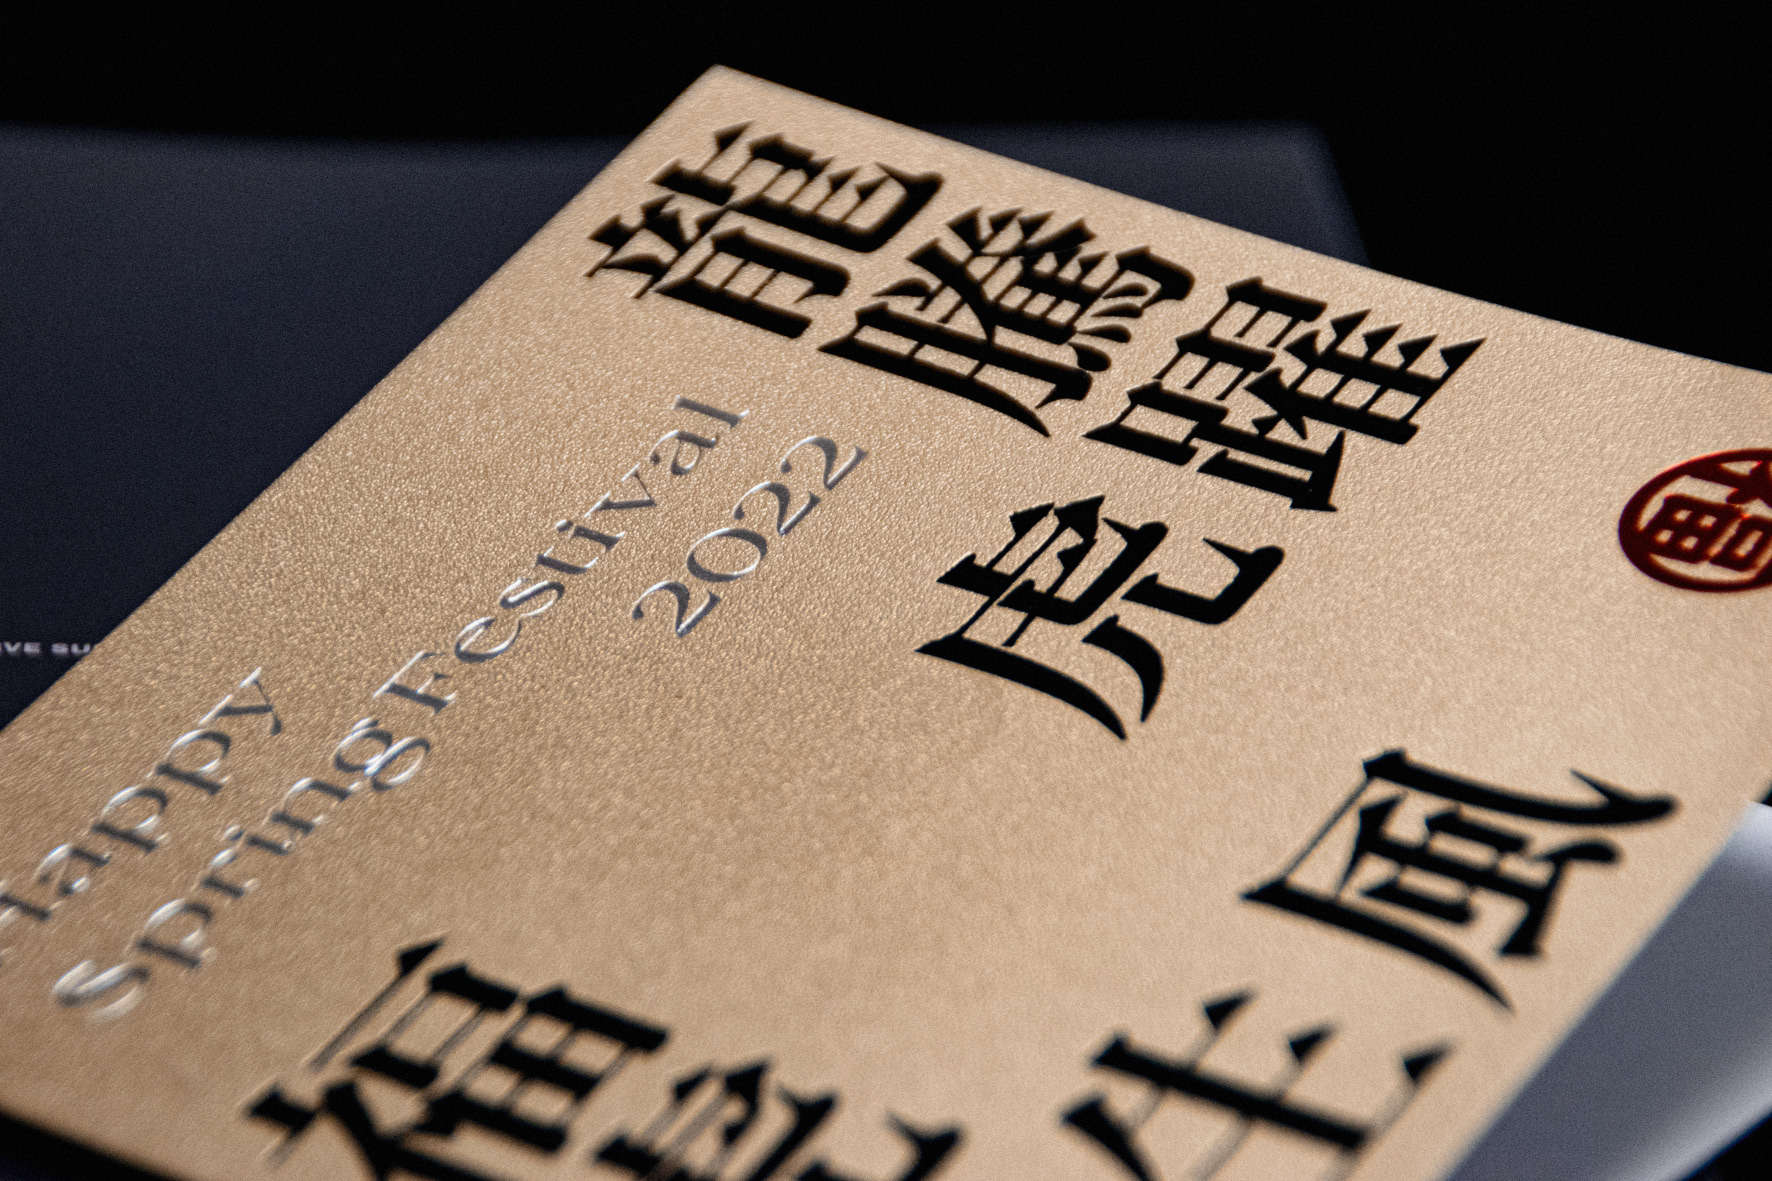 龍騰虎躍
福虎生風
Happy
Spring Festival
2022